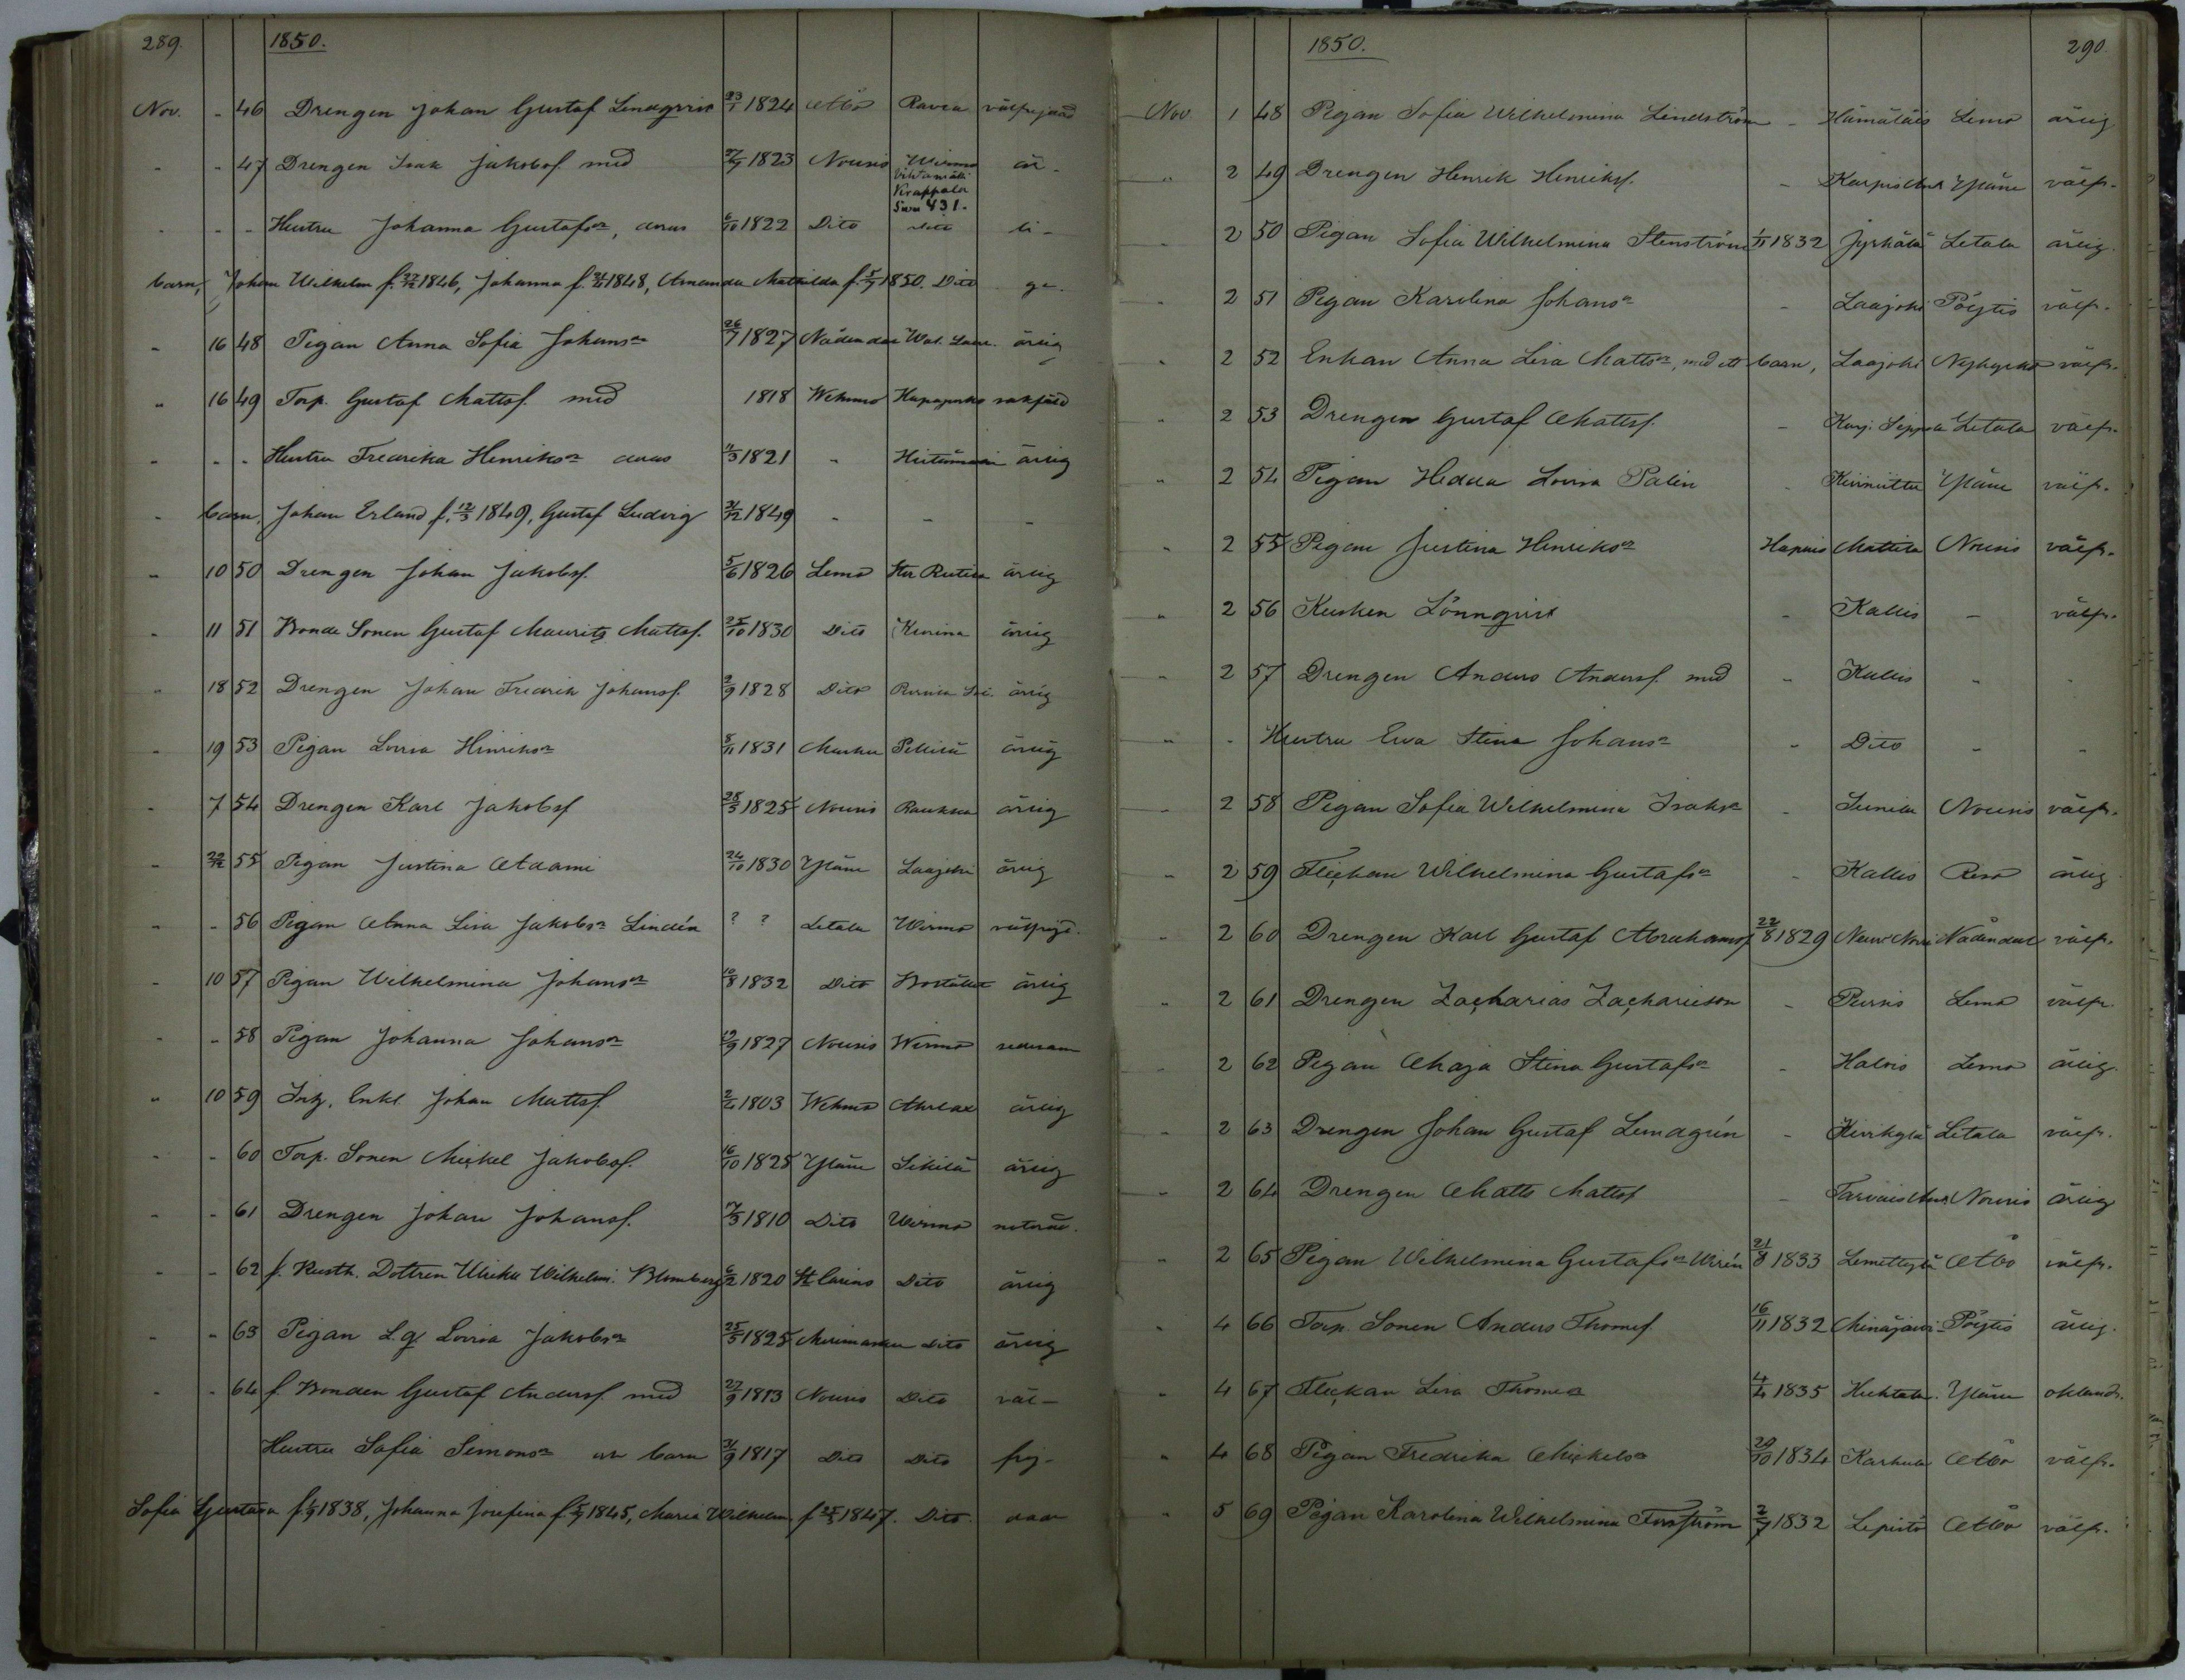 289. 1850.
Nov. - 46 Drengen Johan Gustaf Lindqvist 23/1 1824 Åbo Ravea välfrejdad
- - 47 Drengen Isak Jakobsf. med 27/9 1823 Nousis Wirmo är-
Vihtamäki
Krappala
Sivu 431.
- - - Hustru Johanna Gustafsr, deras 6/10 1822 Dito Dito li-
barn, Johan Wilhelm f. 22/12 1846, Johanna f. 1848, Amanda Mathilda f. 5/7 1850. Dito ge.
- 16 48 Pigan Anna Sofia Johansr 26/7 1827 Nådendal ärlig
" 16 49 Torp. Gustaf Mattsf. med 1818 Wehmo
- - - Hustru Fredrika Henriksr deras 4/3 1821 - ärlig
- barn, Johan Erland f. 12/3 1849, Gustaf Ludvig 31/12 1849 - - -
- 10 50 Drengen Johan Jakobsf. 5/6 1826 Lemo Stor Rutila ärlig
- 11 51 Bonde Sonen Gustaf Maurits Mattsf. 25/10 1830 Dito Kurina ärlig
" 18 52 Drengen Johan Fredrik Johansf. 2/9 1828 Dito ärlig
- 19 53 Pigan Lovisa Hinriksr 8/11 1831 Masku ärlig
- 7 54 Drengen Karl Jakobsf 28/3 1825 Nousis Raukka ärlig
- 22/12 55 Pigan Justina Adami 24/10 1830 Yläne Laajoki ärlig
- - 56 Pigan Anna Lisa Jakobsr Lindén ? ? Letala Wirmo välfrejd.
- 10 57 Pigan Wilhelmina Johansr 10/8 1832 Dito Bostället ärlig
- - 58 Pigan Johanna Johansr 19/9 1827 Nousis Wirmo redesam
" 10 59 Inh. Enkl. Johan Mattsf. 1803 Wehmo Ahrlax ärlig
- - 60 Torp. Sonen Mickel Jakobsf. 16/10 1825 Yläne Sikilä ärlig
- - 61 Drengen Johan Johansf. 7/3 1810 Dito Wirmo
- - 62 f. Rusth. Dottren Ulrika Wilhelmi. Blomberg 6/2 1820 St Carins Dito ärlig
- - 63 Pigan L. q Lovisa Jakobsr 25/5 1825 Merimasku Dito ärlig
- - 64 f. Bonden Gustaf Andersf. med 27/9 1813 Nousis Dito väl-
Hustru Sofia Simonsr och barn 21/9 1817 Dito Dito frej-
Sofia Gustava f. 1/9 1838, Johanna Josefina f. 5/9 1845, Maria Wilhelm. f 25/5 1847. Dito. dade
1850. 290.
Nov 1 48 Pigan Sofia Wilhelmina Lindström - Hämäläis Lemo ärlig
" 2 49 Drengen Henrik Henriksf. - Yläne välfr.
2 50 Pigan Sofia Wilhelmina Stenström 1/11 1832 Jyrkälä Letala ärlig.
- 2 51 Pigan Karolina Johansr - Laajoki Pöytis välfr.
" 2 52 Enkan Anna Lisa Mattsr, med ett barn, Laajoki Nykyrko välfr.
" 2 53 Drengen Gustaf Mattsf. - Karj. Seppälä Letala välfr.
" 2 54 Pigan Hedda Lovisa Palin - Kiiniittu Yläne välfr.
" 2 55 Pigan Justina Henriksr Hapnis Mattila Nousis välfr.
" 2 56 Kusken Lönnqvist - Kallis - välfr.
" 2 57 Drengen Anders Andersf. med - Kallis - -
" - Hustru Ewa Stina Johansr - Dito - -
- 2 58 Pigan Sofia Wilhelmina Isaksr - Junila Nousis välfr.
" 2 59 Flickan Wilhelmina Gustafsr - Kallis Reso ärlig
" 2 60 Drengen Karl Gustaf Abrahamsf 22/8 1829 Nådendal välfr.
" 2 61 Drengen Zacharias Zachariesson - Purnis Lemo välfr.
- 2 62 Pigan Maja Stina Gustafsr - Halois Lemo ärlig.
- 2 63 Drengen Johan Gustaf Lemdgrén - Kivikylä Letala välfr.
- 2 64 Drengen Matts Mattsf - Nousis ärlig
" 2 65 Pigan Wilhelmina Gustafsr Wirén 21/8 1833 Lemettylä Åbo välfr.
" 4 66 Torp. Sonen Anders Thomsf 16/11 1832 Minäjoki Pöytis ärlig.
" 4 67 Flickan Lisa Thomesr 4/4 1835 Huhtala. Yläne oklandr.
" 4 68 Pigan Fredrika Mickelsr 29/10 1834 Karhula Åbo välfr.
" 5 69 Pigan Karolina Wilhelmina Forsström 2/7 1832 Lepistö Åbo välfr.